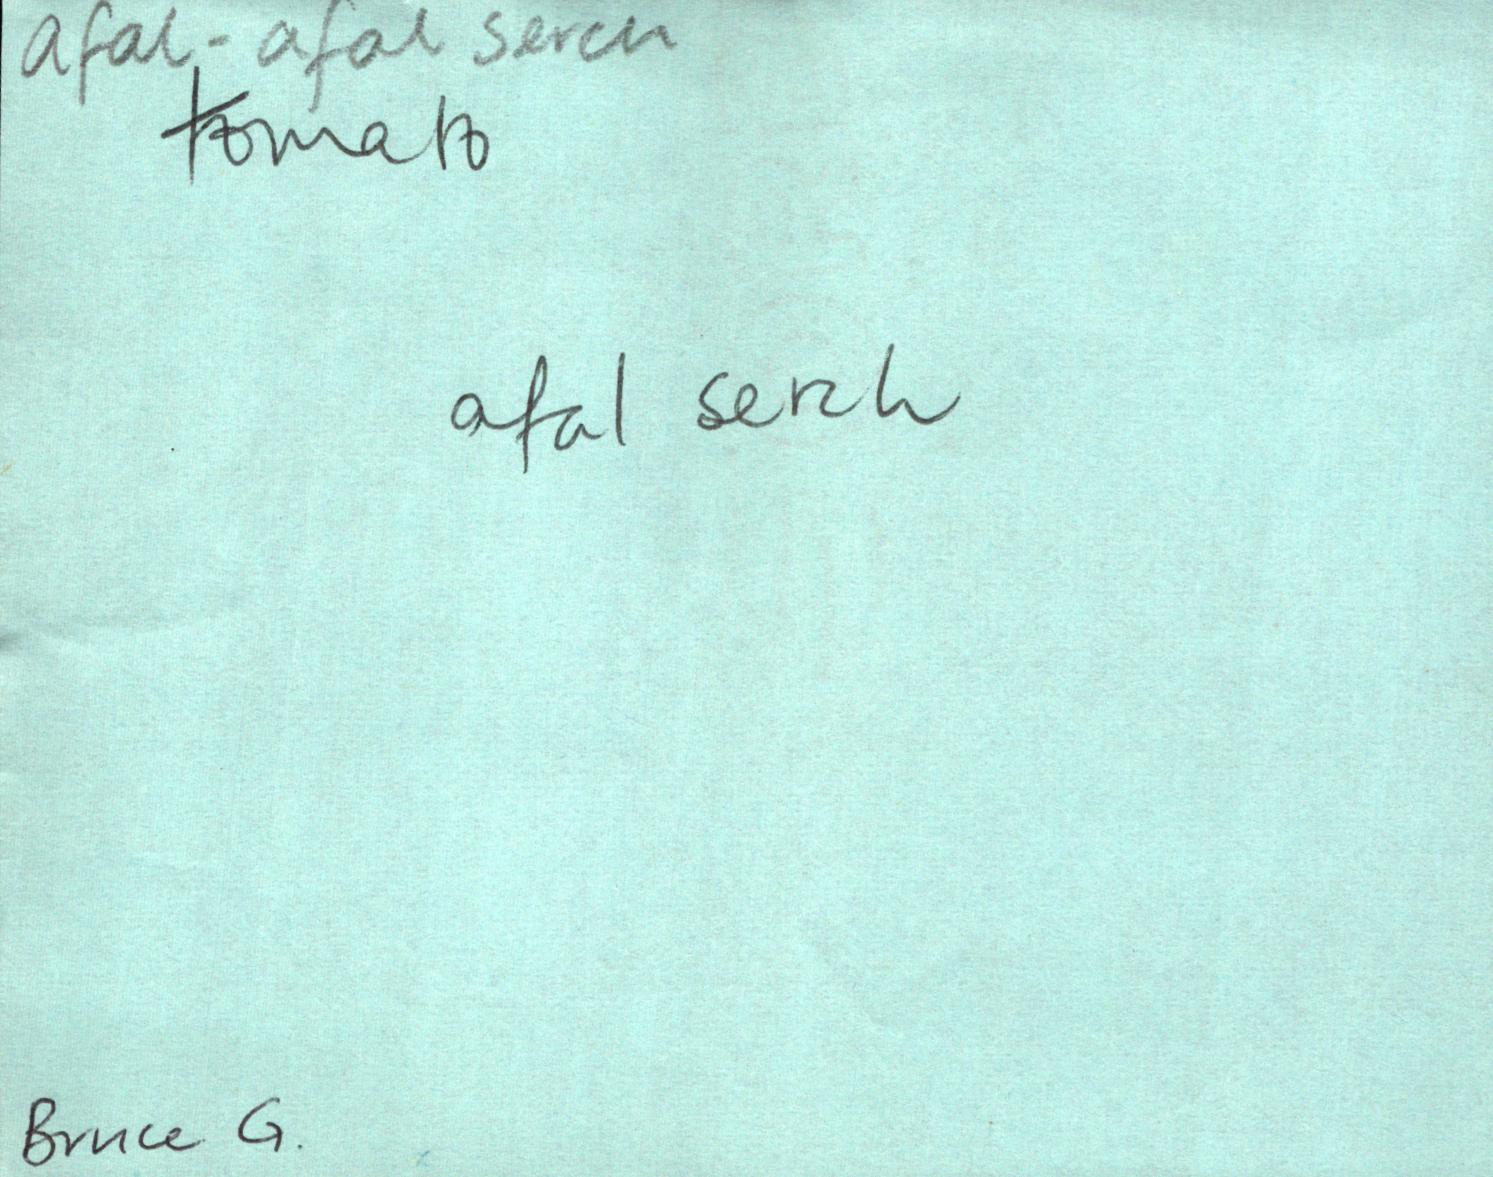 afal - afal serch
tomato
afal serch
Bruce G.